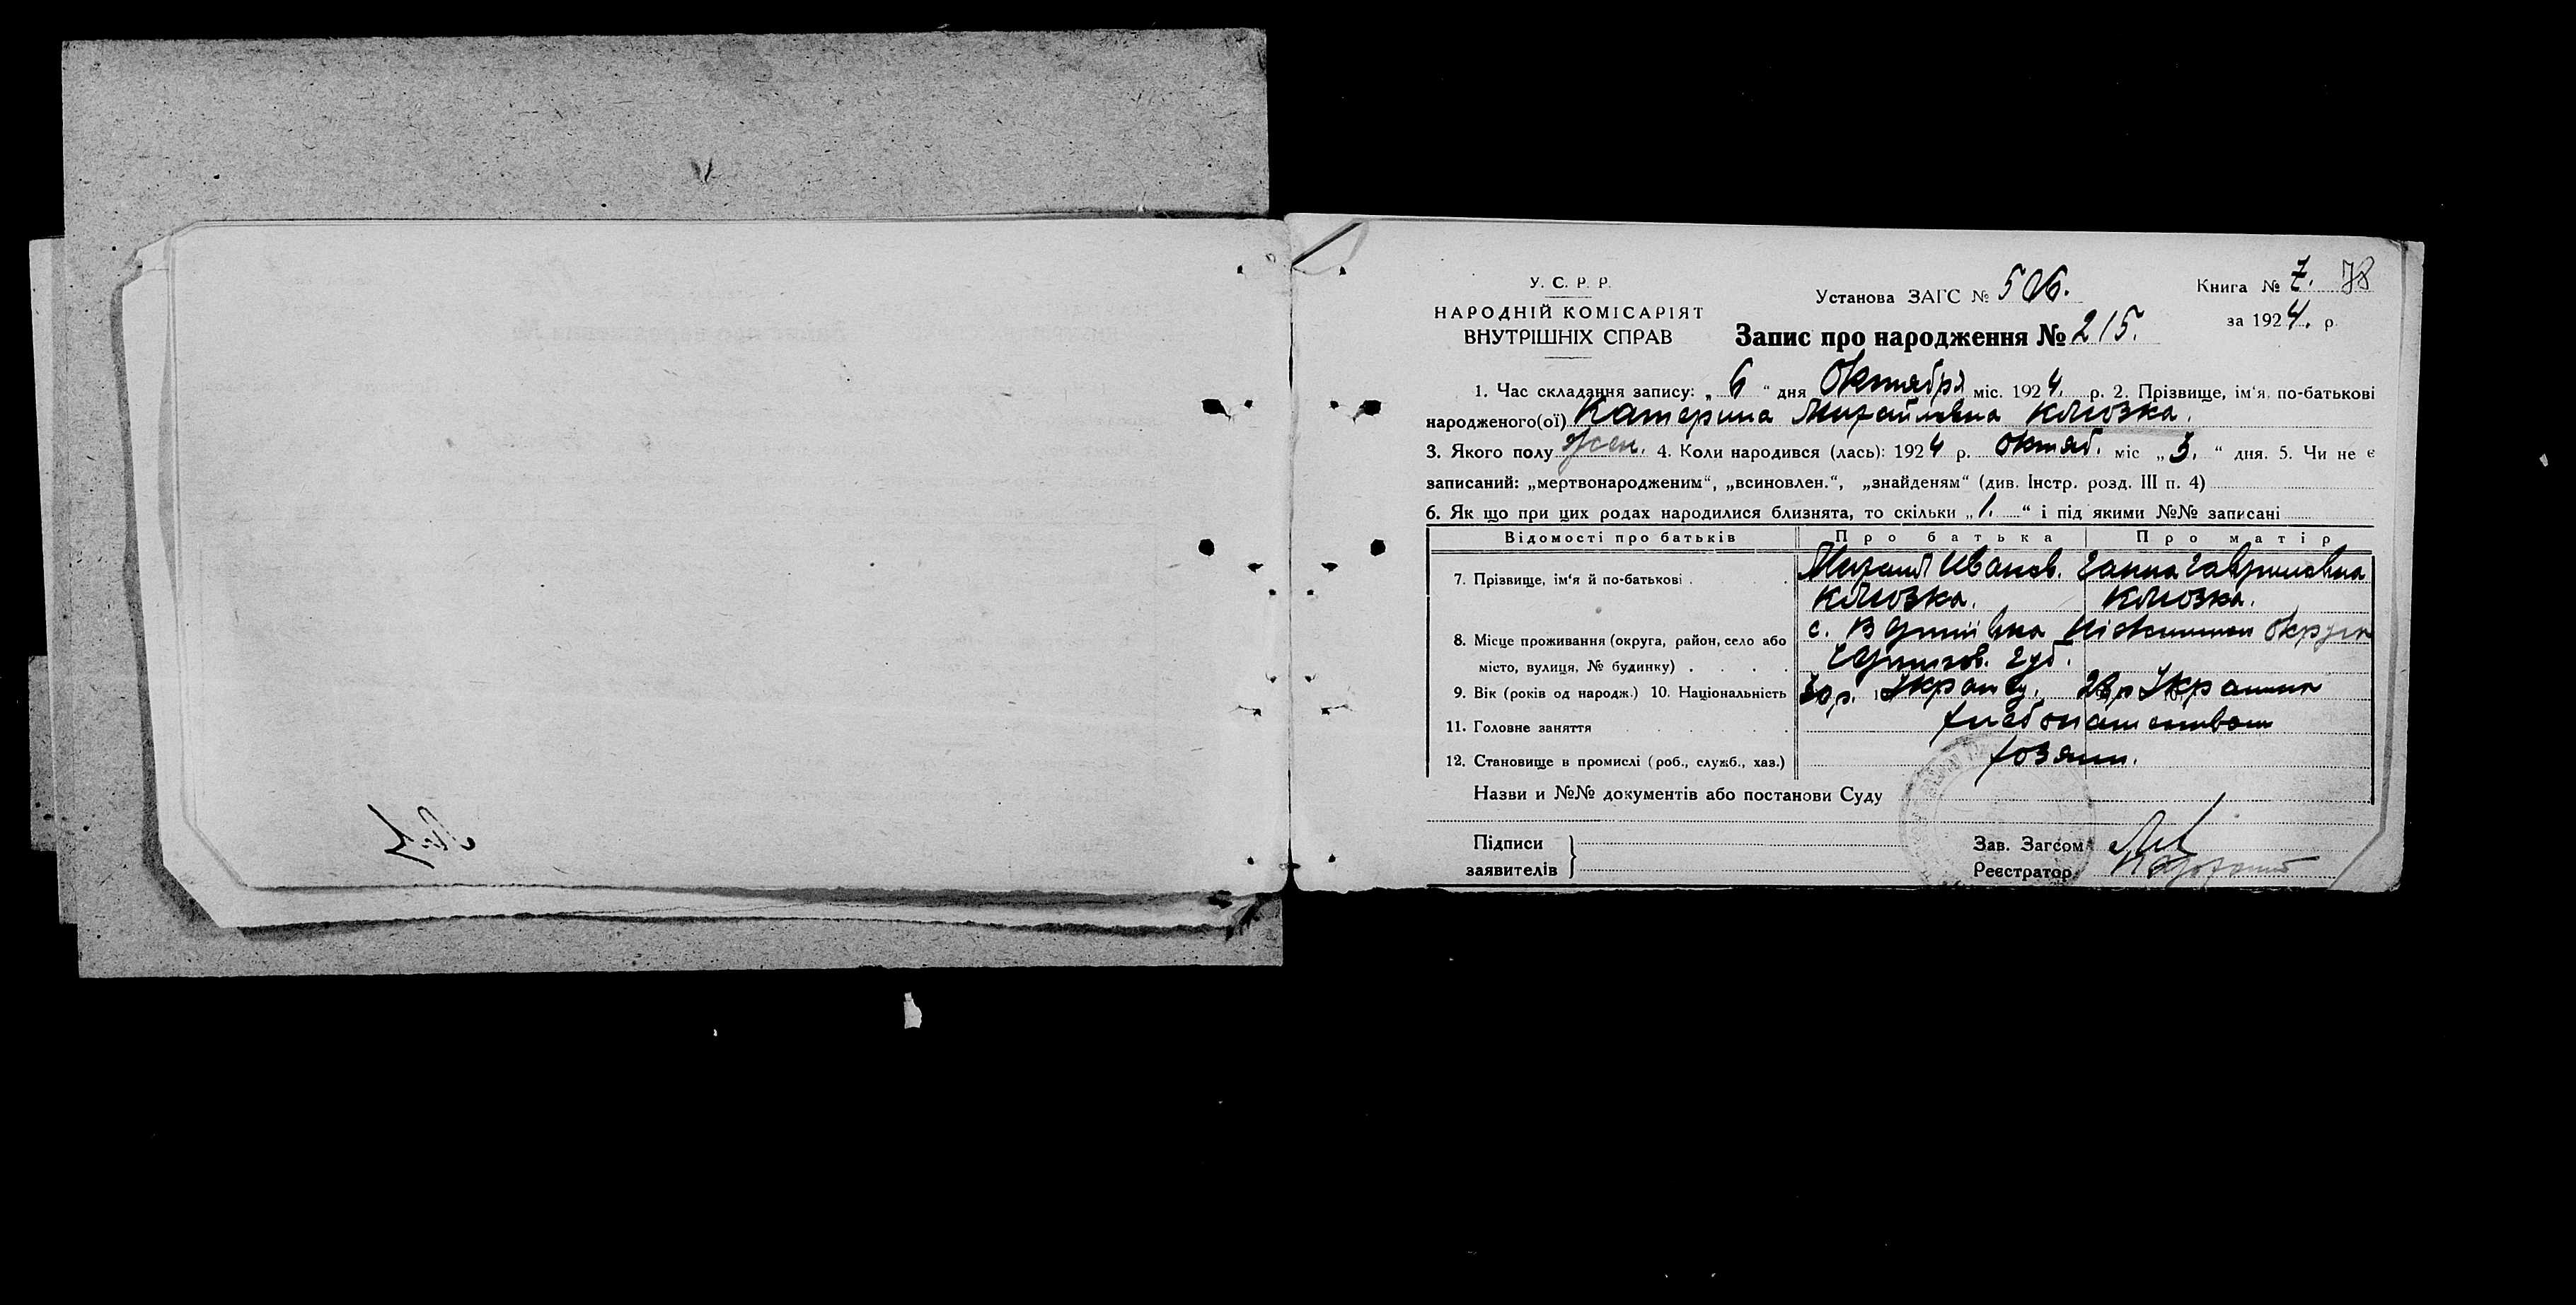 У. С. Р. Р.
НАРОДНІЙ КОМІСАРІЯТ
ВНУТРІШНІХ СПРАВ
Установа ЗАГС № 506.
Книга № 7. 78
за 1924. р.
Запис про народження № 215.
1. Час складання запису: „6“ дня Октября міс. 1924. р. 2. Прізвище, ім‘я, по-батькові
народженого(ої) Катерина Михайловна Клюзка.
3. Якого полу жен. 4. Коли народився (лась): 1924 р. октяб. міс „3.“ дня. 5. Чи не є
записаний: „мертвонародженим“, „всиновлен.“, „знайденям“ (див. Інстр. розд. III п. 4)
6. Як що при цих родах народилися близнята, то скільки „1.“ і під якими №№ записані
Відомості про батьків Про батька Про матір
7. Прізвище, ім‘я й по-батькові . . Михаил Иванов. Ганна Гавриловна
Клюзка. Клюзка.
8. Місце проживання (округа, район, село або с. Вертіївка Ніжинськ округи
місто, вулиця, № будинку) . . . . Чернигов. губ.
9. Вік (років од народж.) 10. Національність 30 р. Украинц. р Украинка
11. Головне заняття . . . . . хлебопашеством
12. Становище в промислі (роб., служб., хаз.) хозяин.
Назви и №№ документів або постанови Суду
Підписи
заявителів
Зав. Загсом
Реєстратор